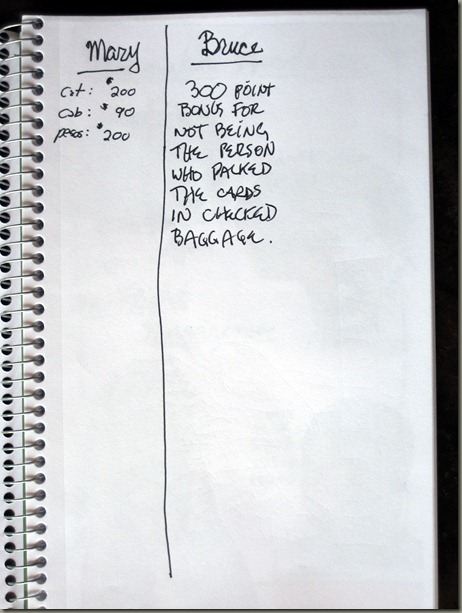 Mary
Cat: $200
cab: $90
pesos: $200
Bruce
300 POINT
BONUS FOR
NOT BEING
THE PERSON
WHO PACKED
THE CARDS
IN CHECKED
BAGGAGE.